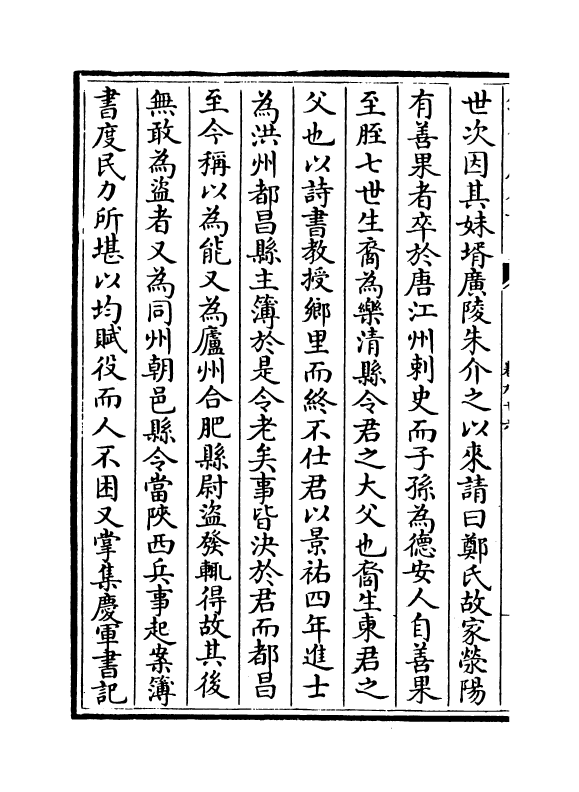 世次因其妹壻廣陵朱介之以來請曰鄭氏故家滎陽
有善果者卒於唐江州刺史而子孫為德安人自善果
至胵七世生裔為樂清縣令君之大父也裔生東君之
父也以詩書教授鄉里而終不仕君以景祐四年進士
為洪州都昌縣主簿於是令老矣事皆決於君而都昌
至今稱以為能又為廬州合肥縣尉盜發輒得故其後
無敢為盜者又為同州朝邑縣令當陝西兵事起案簿
書度民力所堪以均賦役而人不困又掌集慶軍書記